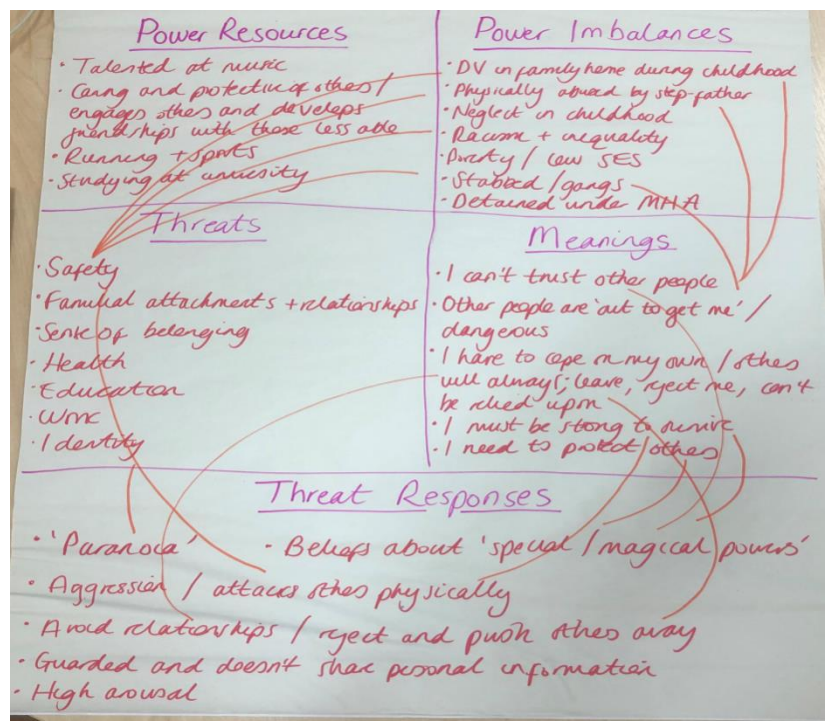 Power Resources
· Talented at music
· Caring and protective of others /
engages others and develops
friendships with those less able
· Running + sports
· Studying at university
Power Imbalances
· DV in family home during childhood
· Physically abused by step-father
· Neglect in childhood
· Racism + inequality
· Poverty / low SES
· Stabbed / gangs
· Detained under MHA
Threats
· Safety
· Familial attachments + relationships
· Sense of belonging
· Health
· Education
· Work
· Identity
Meanings
· I can't trust other people
· Other people are 'out to get me' /
dangerous
· I have to cope on my own / others
will always; leave, reject me, can't
be relied upon
· I must be strong to survive
· I need to protect others
Threat Responses
· 'Paranoia'
· Beliefs about 'special / magical powers'
· Aggression / attacks others physically
· Avoid relationships / reject and push others away
· Guarded and doesn't share personal information
· High arousal